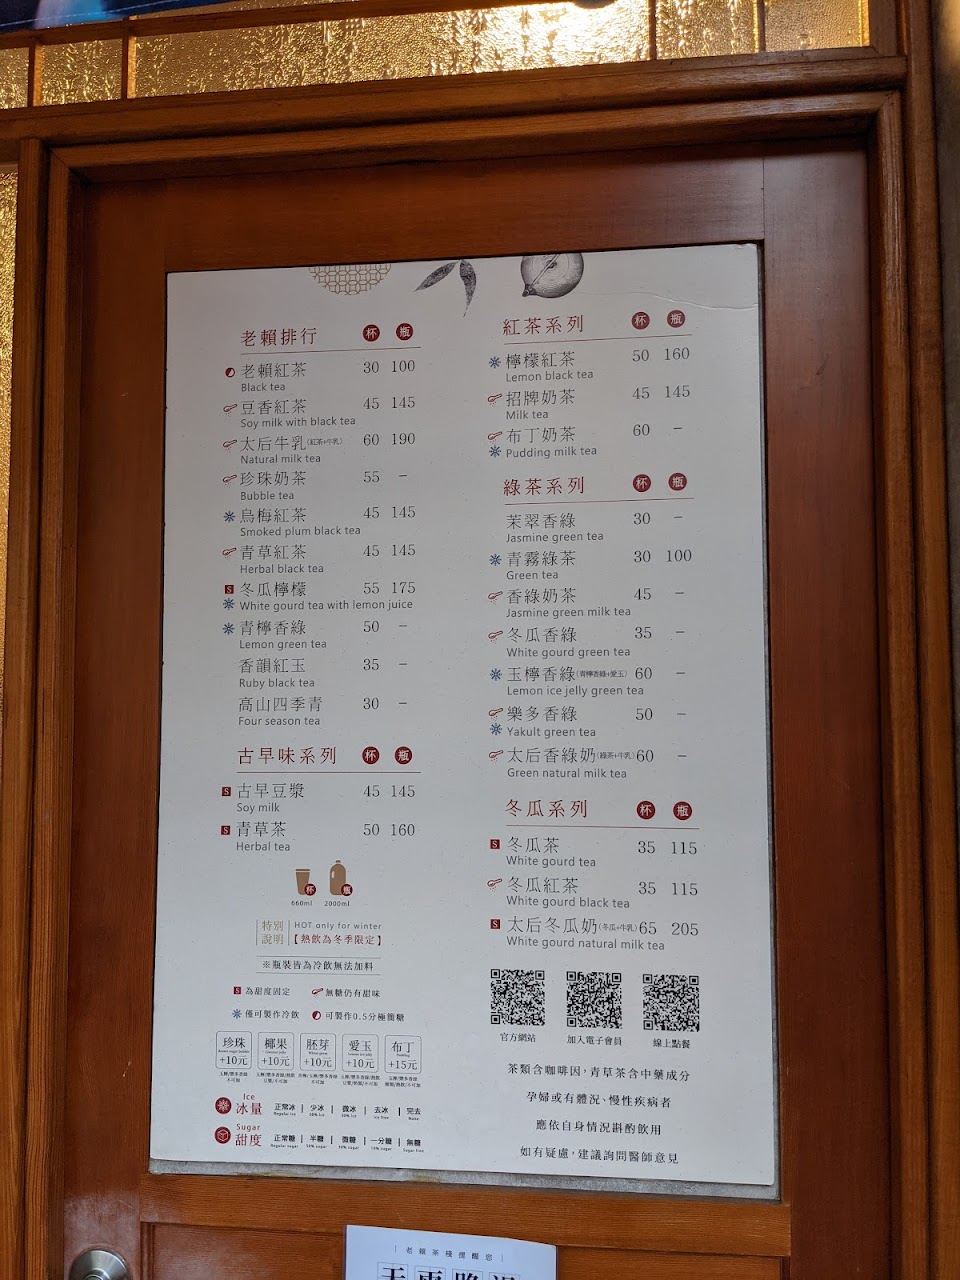 老賴排行 杯 瓶
老賴紅茶 30 100
Black tea
豆香紅茶 45 145
Soy milk with black tea
太后牛乳(紅茶+牛乳) 60 190
Natural milk tea
珍珠奶茶 55 –
Bubble tea
烏梅紅茶 45 145
Smoked plum black tea
青草紅茶 45 145
Herbal black tea
S 冬瓜檸檬 55 175
White gourd tea with lemon juice
青檸香綠 50 –
Lemon green tea
香韻紅玉 35 –
Ruby black tea
高山四季青 30 –
Four season tea
古早味系列 杯 瓶
S 古早豆漿 45 145
Soy milk
S 青草茶 50 160
Herbal tea
杯 瓶
660ml 2000ml
特別說明 HOT only for winter
【熱飲為冬季限定】
※瓶裝皆為冷飲無法加料
S 為甜度固定 無糖仍有甜味
僅可製作冷飲 可製作0.5分極簡糖
珍珠 +10元 椰果 +10元 胚芽 +10元 愛玉 +10元 布丁 +15元
Ice
冰量 正常冰 | 少冰 | 微冰 | 去冰 | 完去
Sugar
甜度 正常糖 | 半糖 | 微糖 | 一分糖 | 無糖
紅茶系列 杯 瓶
檸檬紅茶 50 160
Lemon black tea
招牌奶茶 45 145
Milk tea
布丁奶茶 60 –
Pudding milk tea
綠茶系列 杯 瓶
茉翠香綠 30 –
Jasmine green tea
青霧綠茶 30 100
Green tea
香綠奶茶 45 –
Jasmine green milk tea
冬瓜香綠 35 –
White gourd green tea
玉檸香綠(青檸香綠+愛玉) 60 –
Lemon ice jelly green tea
樂多香綠 50 –
Yakult green tea
太后香綠奶(綠茶+牛乳) 60 –
Green natural milk tea
冬瓜系列 杯 瓶
S 冬瓜茶 35 115
White gourd tea
冬瓜紅茶 35 115
White gourd black tea
S 太后冬瓜奶(冬瓜+牛乳) 65 205
White gourd natural milk tea
官方網站 加入電子會員 線上點餐
茶類含咖啡因,青草茶含中藥成分
孕婦或有體況、慢性疾病者
應依自身情況斟酌飲用
如有疑慮,建議詢問醫師意見
| 老賴茶棧提醒您 |